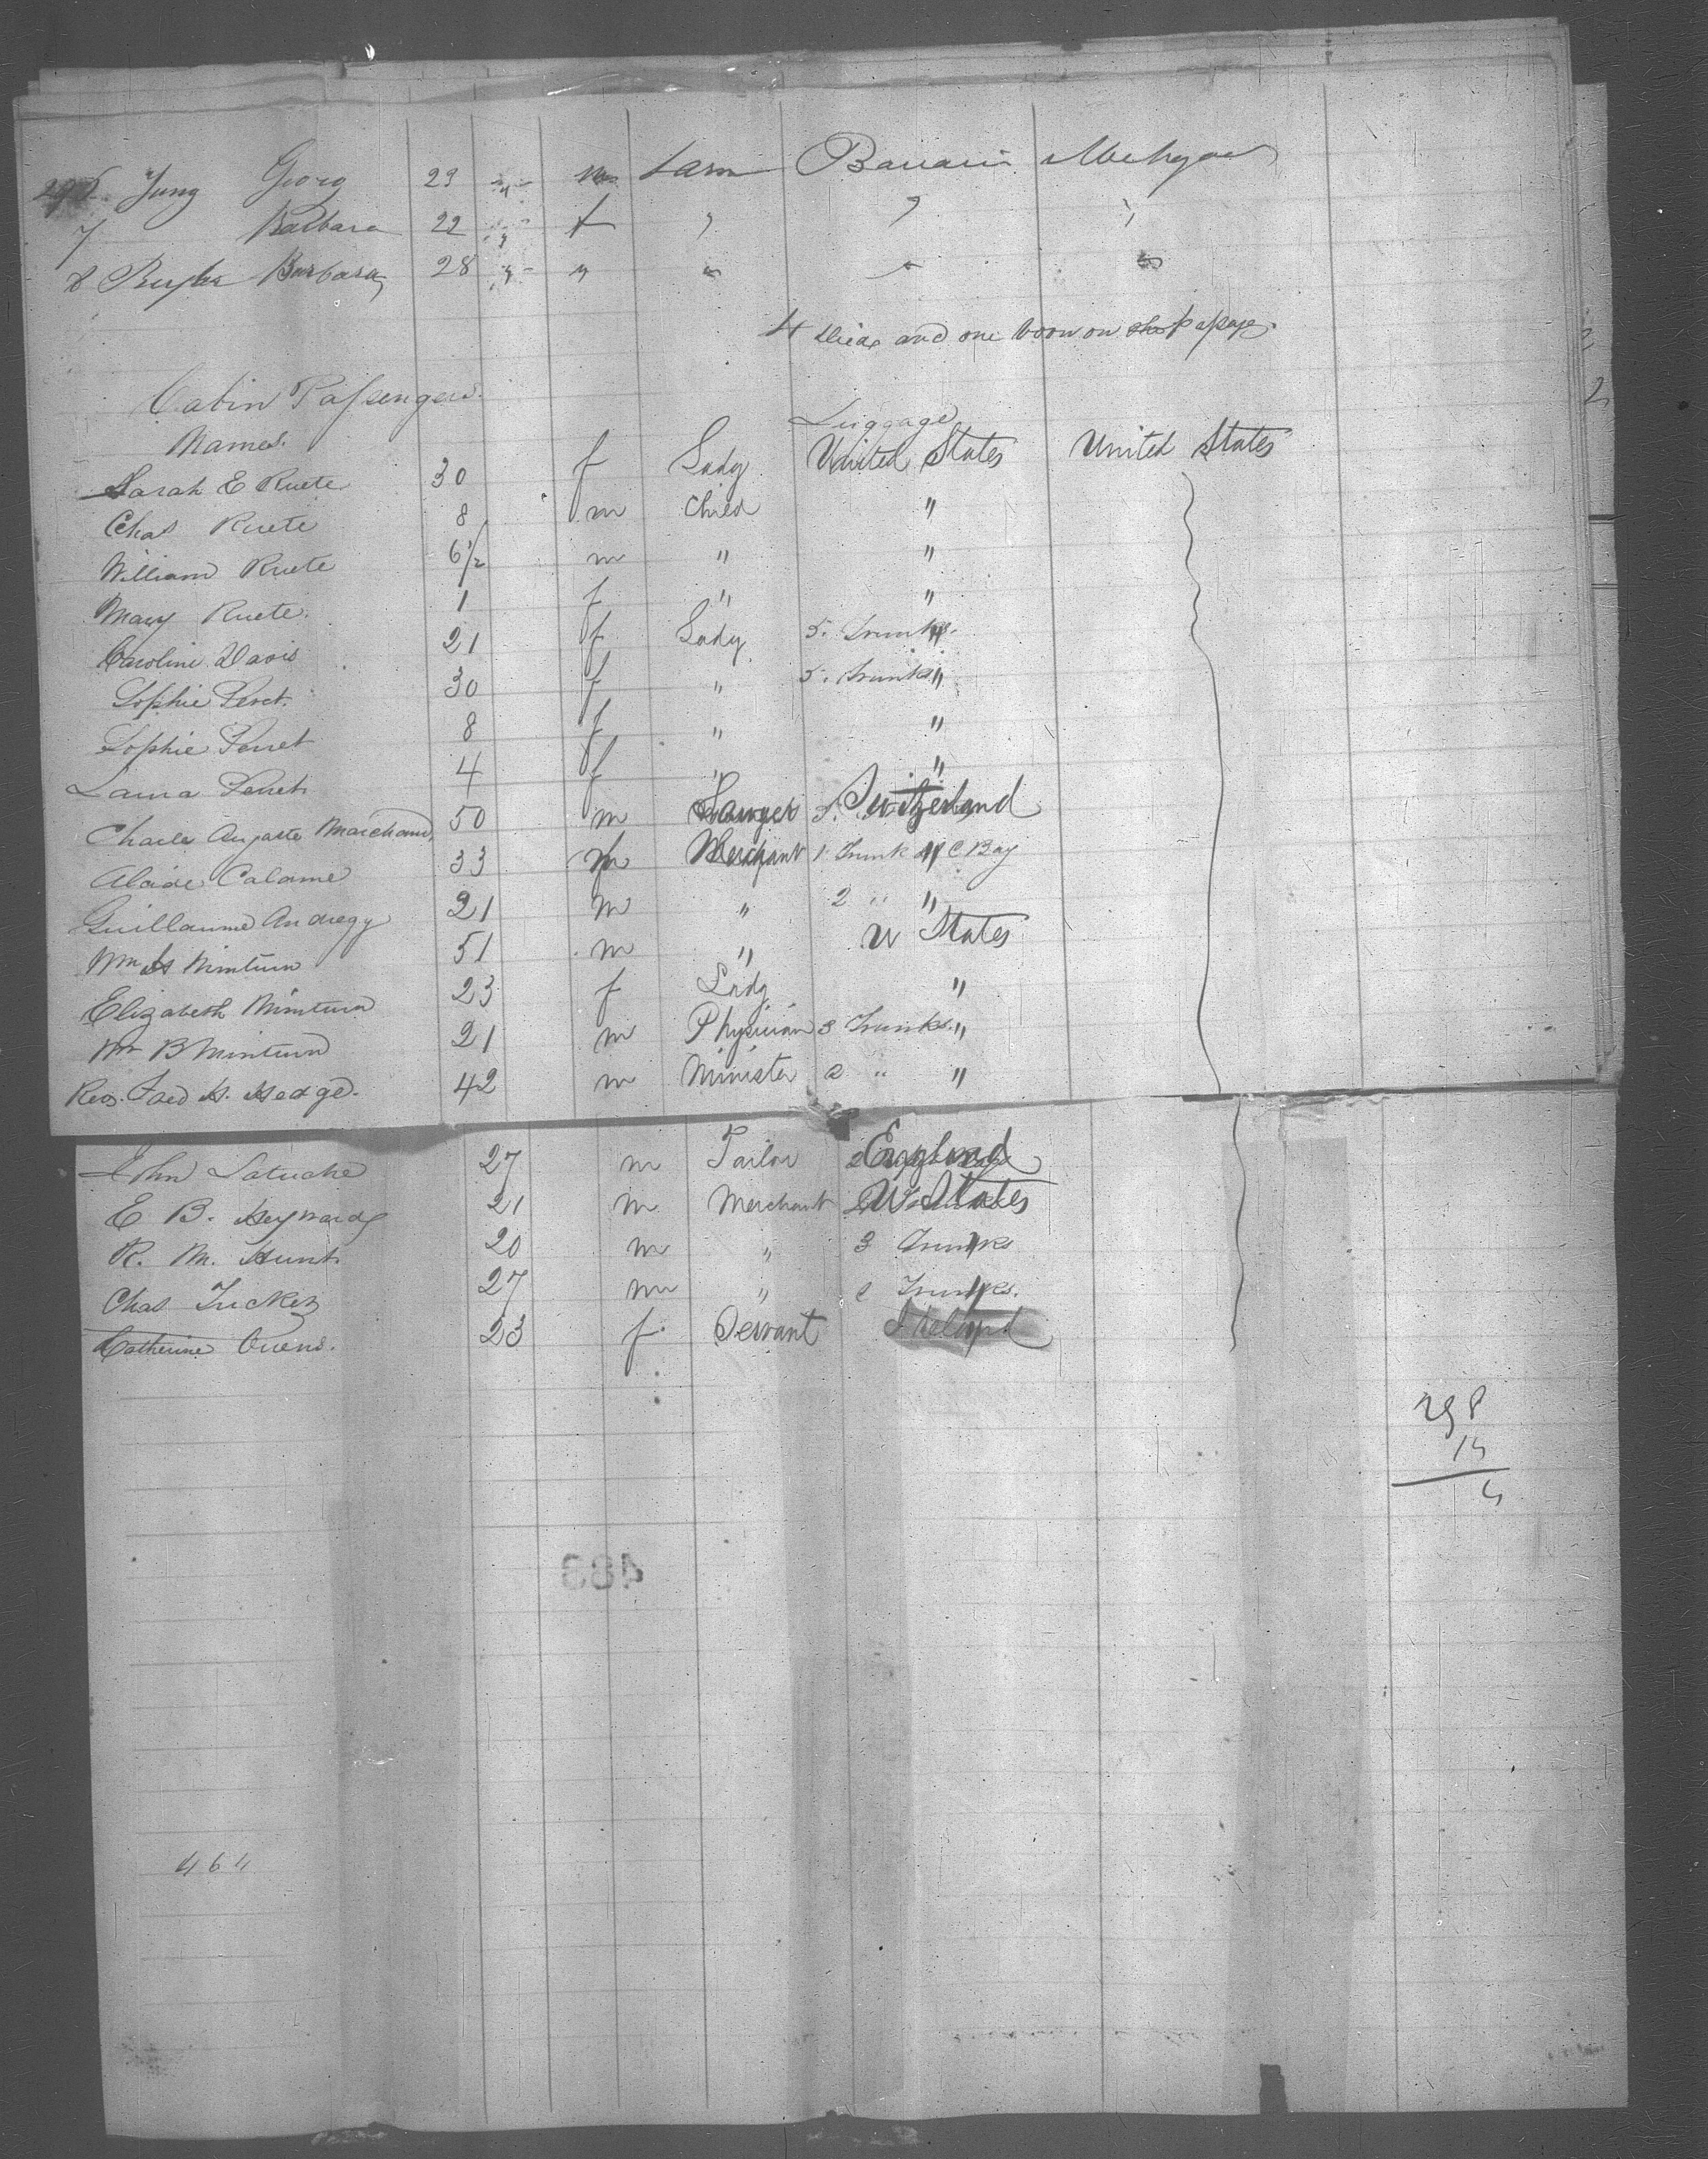 296 Jung Georg 29 " m Farm Bavaria Michigan
7 Barbara 22 " f " " "
8 Barbara 28 " " " " "
4 died and one born on passage.
Cabin Passengers.
Names. Luggage
Sarah E Ruete 30 f Lady United States United States
Chas Ruete 8 m Child "
William Ruete 6 1/2 m " "
Mary Ruete. 1 f " "
Caroline Davis 21 f Lady 5. Trunks. "
Sophie Perret. 30 f " 5. Trunks "
Sophie Perret 8 f " "
Laura Perret 4 f " "
Charle Auguste Marchand 50 m Lawyer Switzerland
Alcide Calame 33 m Merchant 1 Trunk 1 C Bag "
Guillaume Andregy 21 m " 2 " "
Wm H Minturn 51 m " U States
Elizabeth Minturn 23 f Lady "
Wm B Minturn 21 m Physician 3 Trunks. "
Rev. Fred H. Hedge. 42 m Minister 2 " "
John Latuche 27 m Tailor England
E B. Heyward 21 m Merchant U States
R. M. Hunt 20 m " 3 Trunks "
Chas Tucker 27 m " Trunks. "
Catherine Owens. 23 f Servant Ireland
298
483
464